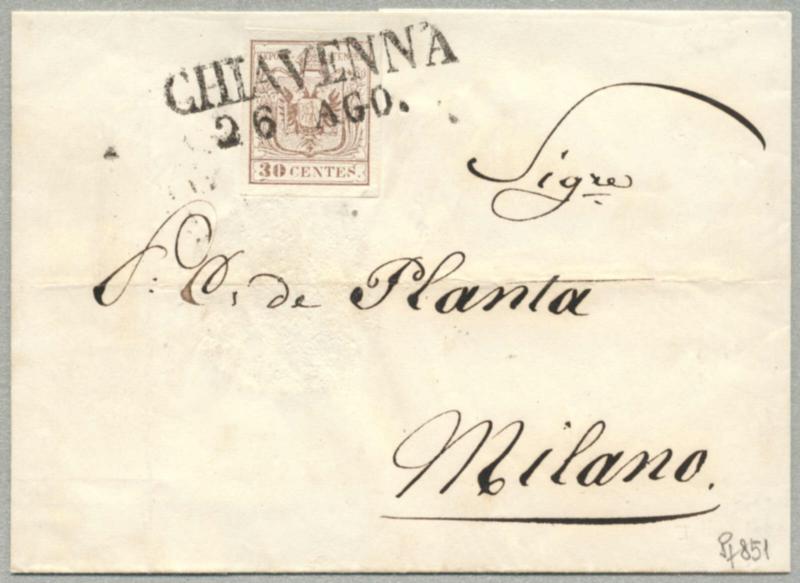 CHIAVENNA
26 AGO.
30 CENTES.
Sigre
P. C. de Planta
Milano.
851